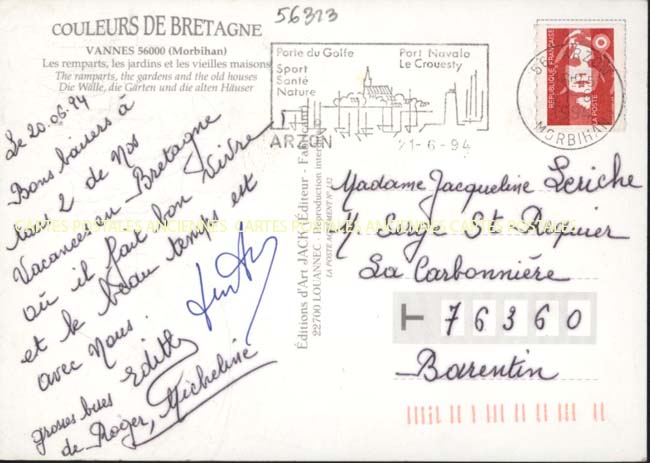 56323
COULEURS DE BRETAGNE
VANNES 56000 (Morbihan)
Les remparts, les jardins et les vieilles maisons
The ramparts, the gardens and the old houses
Die Wälle, die Gärten und die alten Häuser
Porte du Golfe
Sport
Santé
Nature
Port Navalo
Le Crouesty
ARZON
21-6-94
56 ARZON
MORBIHAN
REPUBLIQUE FRANÇAISE
LA POSTE
Le 20.06.94
Bons baisers à
tous 2 de Nos
Vacances en Bretagne
où il fait bon Vivre
et le beau temps est
avec Nous.
grosses bises Edith
de Roger, Micheline
Editions d'Art JACK Éditeur
22700 LOUANNEC - Reproduction interdite
CARTES POSTALES ANCIENNES CARTES POSTALES ANCIENNES CARTES POSTALES
Madame Jacqueline Leriche
4 Serge St Requier
La Carbonnière
76360
Barentin